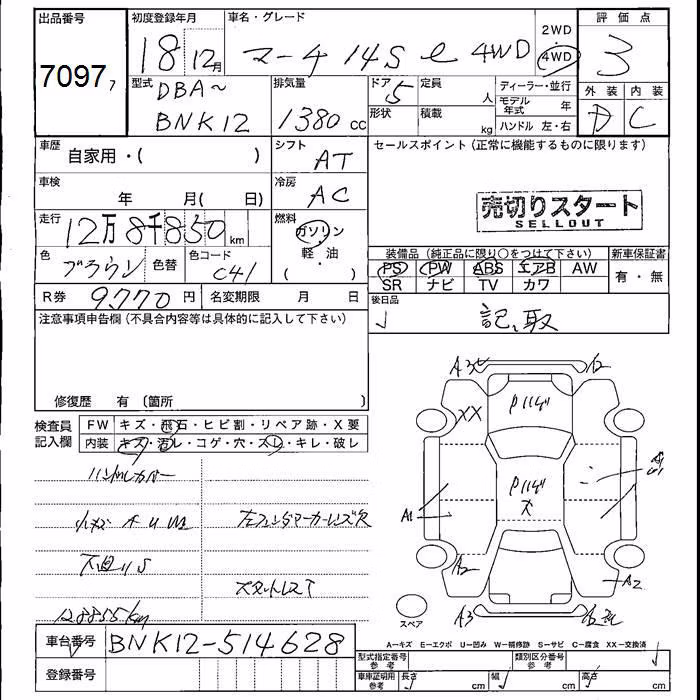 出品番号 初度登録年月 車名・グレード 2WD 評価点
7097 7 18 12月 マーチ 14S e 4WD 4WD 3
型式 排気量 ドア 定員 ディーラー・並行 外装 内装
DBA~ 5 人 モデル年式 年
BNK12 1380 cc 形状 積載 kg ハンドル 左・右 D C
車歴 自家用・( ) シフト AT セールスポイント(正常に機能するものに限ります)
車検 年 月( 日) 冷房 AC
売切りスタート
SELLOUT
走行 12万8千850 km 燃料 ガソリン
軽・油
( )
色 ブラウン 色替 色コード C41
装備品(純正品に限り○をつけて下さい) 新車保証書
PS PW ABS エアB AW 有・無
SR ナビ TV カワ
R券 9770円 名変期限 月 日 後日品
記、取
注意事項申告欄(不具合内容等は具体的に記入して下さい)
修復歴 有 〔箇所 〕
検査員 FW キズ・飛石・ヒビ割・リペア跡・X要
記入欄 内装 キズ・汚レ・コゲ・穴・スレ・キレ・破レ
ハンドルカバー
左フェンダマーカーレンズ欠
スタットレスT
128855km
A3 A2
XX P11ガラ
P11ガラ
A1
A2 A2
A3
スペア
A−キズ E−エクボ U−凹み W−補修跡 S−サビ C−腐食 XX−交換済
車台番号 BNK12-514628
登録番号
型式指定番号 参考 類別区分番号 参考
車庫証明用 参考 長さ 幅 高さ